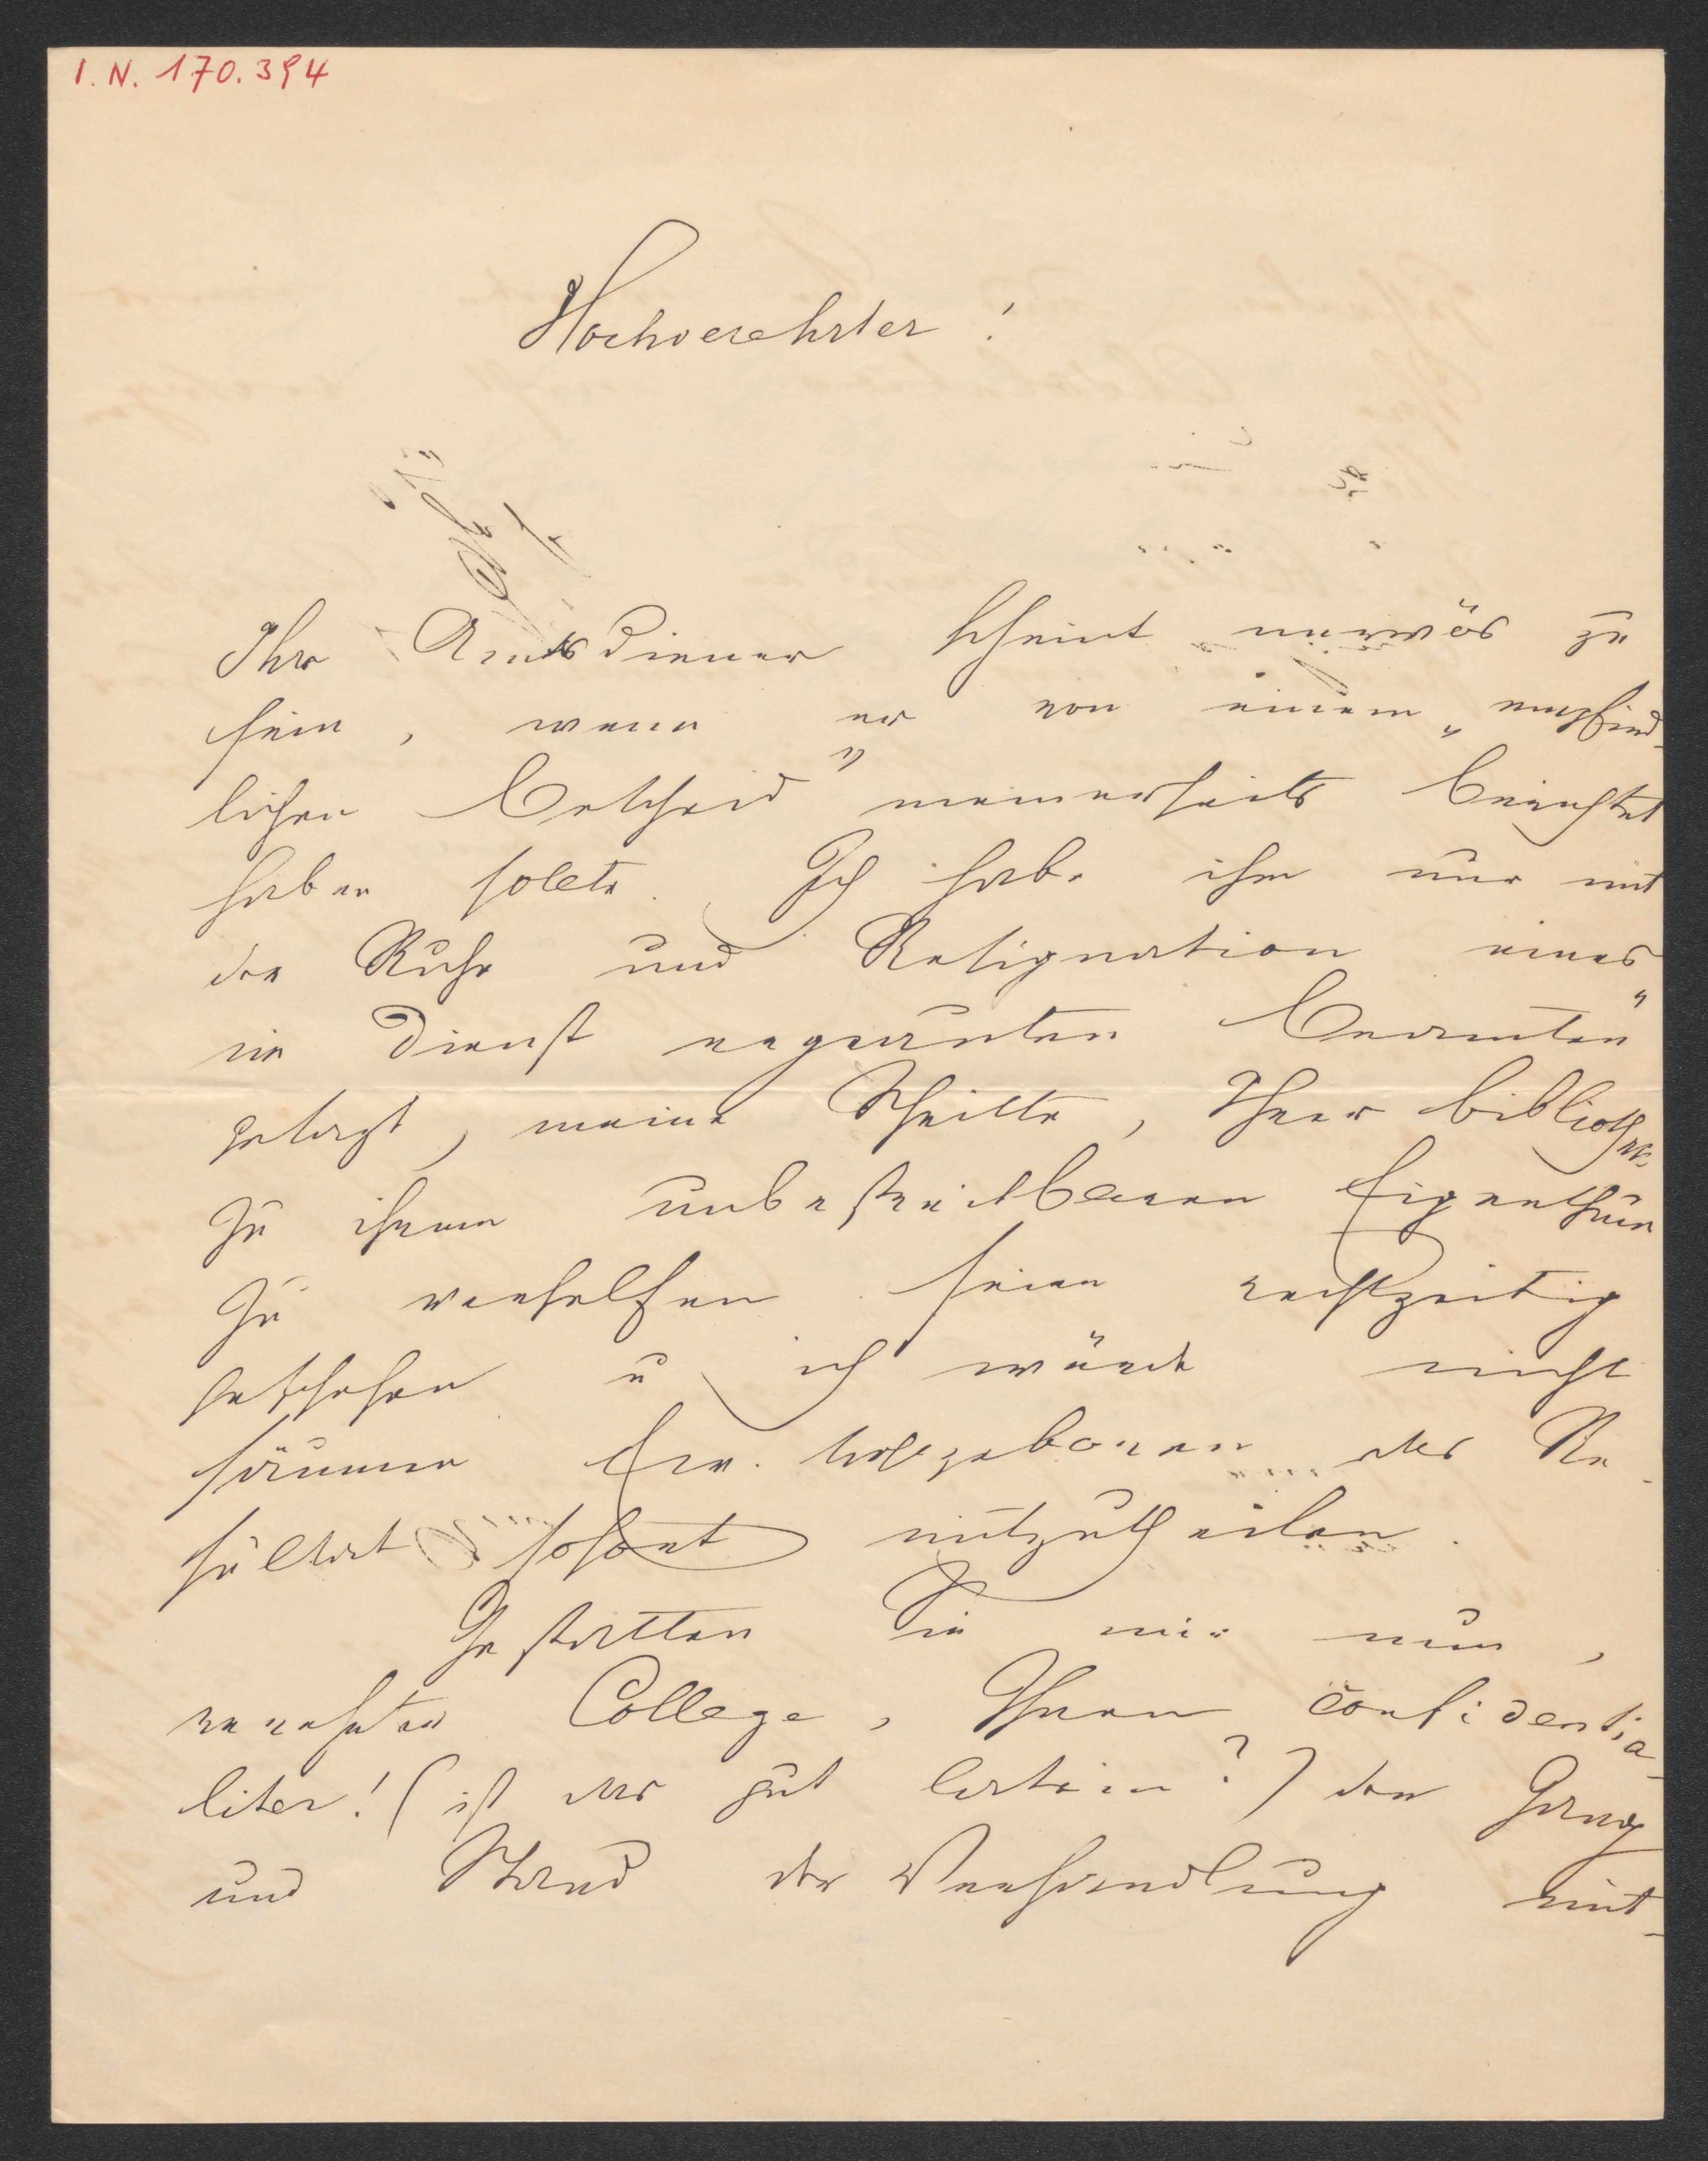 I. N. 170.394
Hochverehrter!
Ihr Amtsdiener scheint nervös zu
sein, wenn er von einem „empfind-
lichen Bescheid" meinerseits berichtet
haben sollte. Ich habe ihm nur mit
der Ruhe und Resignation eines
im Dienst ergrauten Beamten"
gesagt, meine Schritte, Ihrer Bibliothek
zu ihrem unbestreitbaren Eigenthum
zu verhelfen seien rechtzeitig
geschehen u ich würde nicht
säumen Euer. Hochgeboren das Re-
sultat sofort mitzutheilen.
Gestatten Sie mir nun,
verehrter College, Ihnen confidentia-
liter! (ist das gut latein?) den Gang
und Stand der Verhandlung mit-